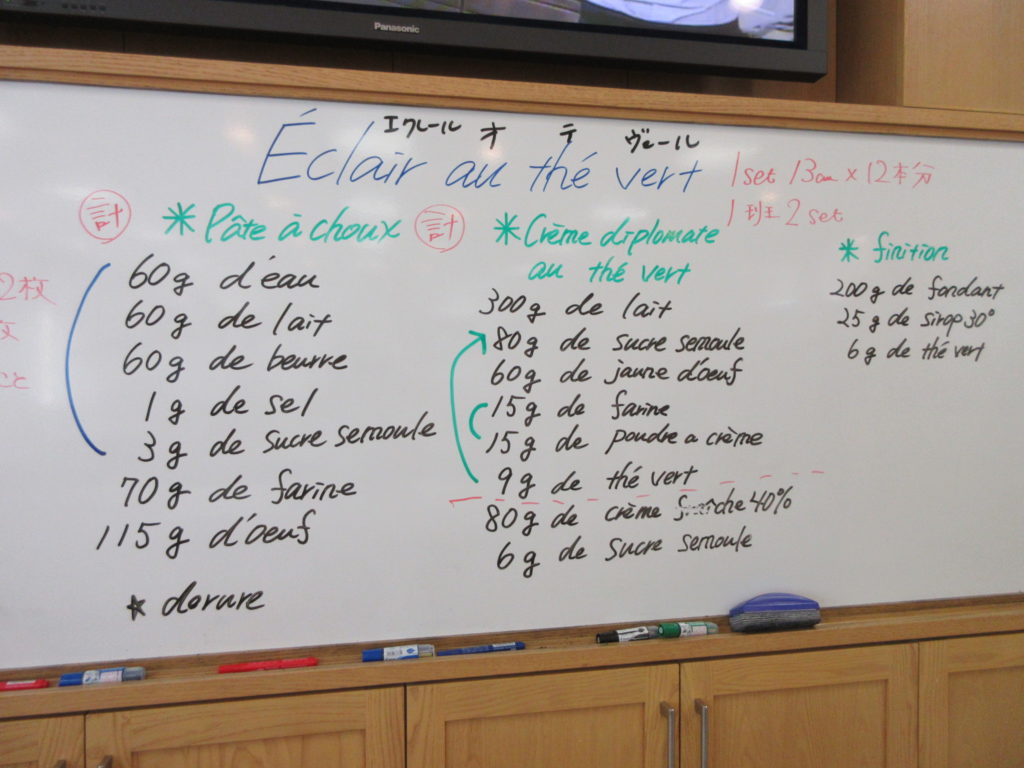 Panasonic
エクレール オ テ ヴェール
Éclair au thé vert
1set 13cm×12本分
1班 2set
計
* Pâte à choux
60g d'eau
60g de lait
60g de beurre
1g de sel
3g de sucre semoule
70g de farine
115g d'oeuf
* dorure
計
* Crème diplomate
au thé vert
300g de lait
80g de sucre semoule
60g de jaune d'oeuf
15g de farine
15g de poudre a crème
9g de thé vert
80g de crème fraîche 40%
6g de sucre semoule
* finition
200g de fondant
25g de sirop 30°
6g de thé vert
2枚
こと